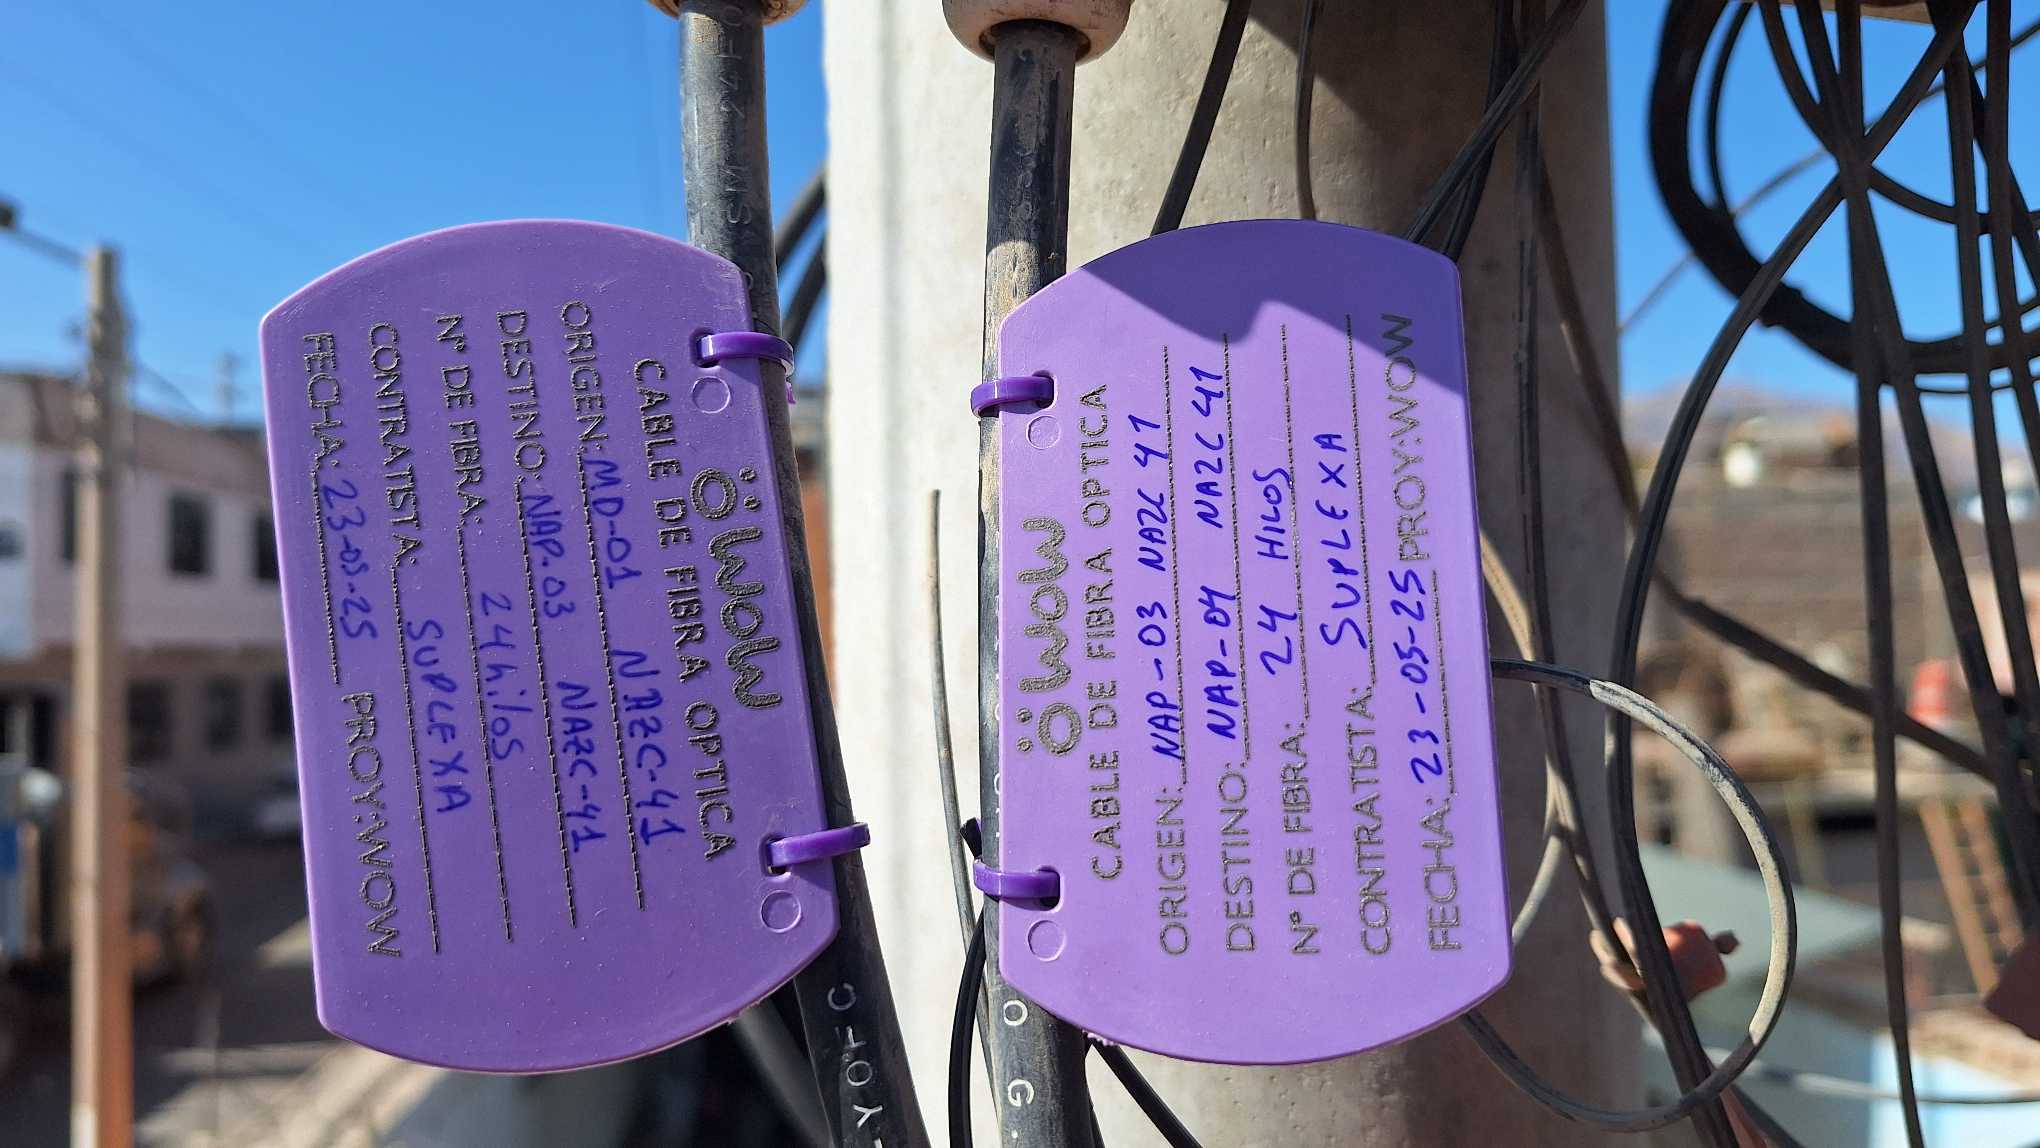 WOW
CABLE DE FIBRA OPTICA
ORIGEN: MD-01 NAZC-41
DESTINO: NAP-03 NAZC-41
Nº DE FIBRA: 24 hilos
CONTRATISTA: SUPLEXA
FECHA: 23-05-25 PROY:WOW
WOW
CABLE DE FIBRA OPTICA
ORIGEN: NAP-03 NAZC 41
DESTINO: NAP-04 NAZC 41
Nº DE FIBRA: 24 HILOS
CONTRATISTA: SUPLEXA
FECHA: 23-05-25 PROY:WOW